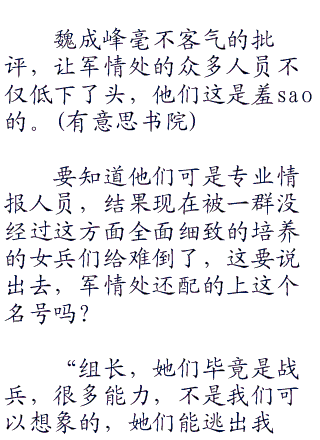 魏成峰毫不客气的批
评，让军情处的众多人员不
仅低下了头，他们这是羞sao
的。(有意思书院)
要知道他们可是专业情
报人员，结果现在被一群没
经过这方面全面细致的培养
的女兵们给难倒了，这要说
出去，军情处还配的上这个
名号吗？
“组长，她们毕竟是战
兵，很多能力，不是我们可
以想象的，她们能逃出我